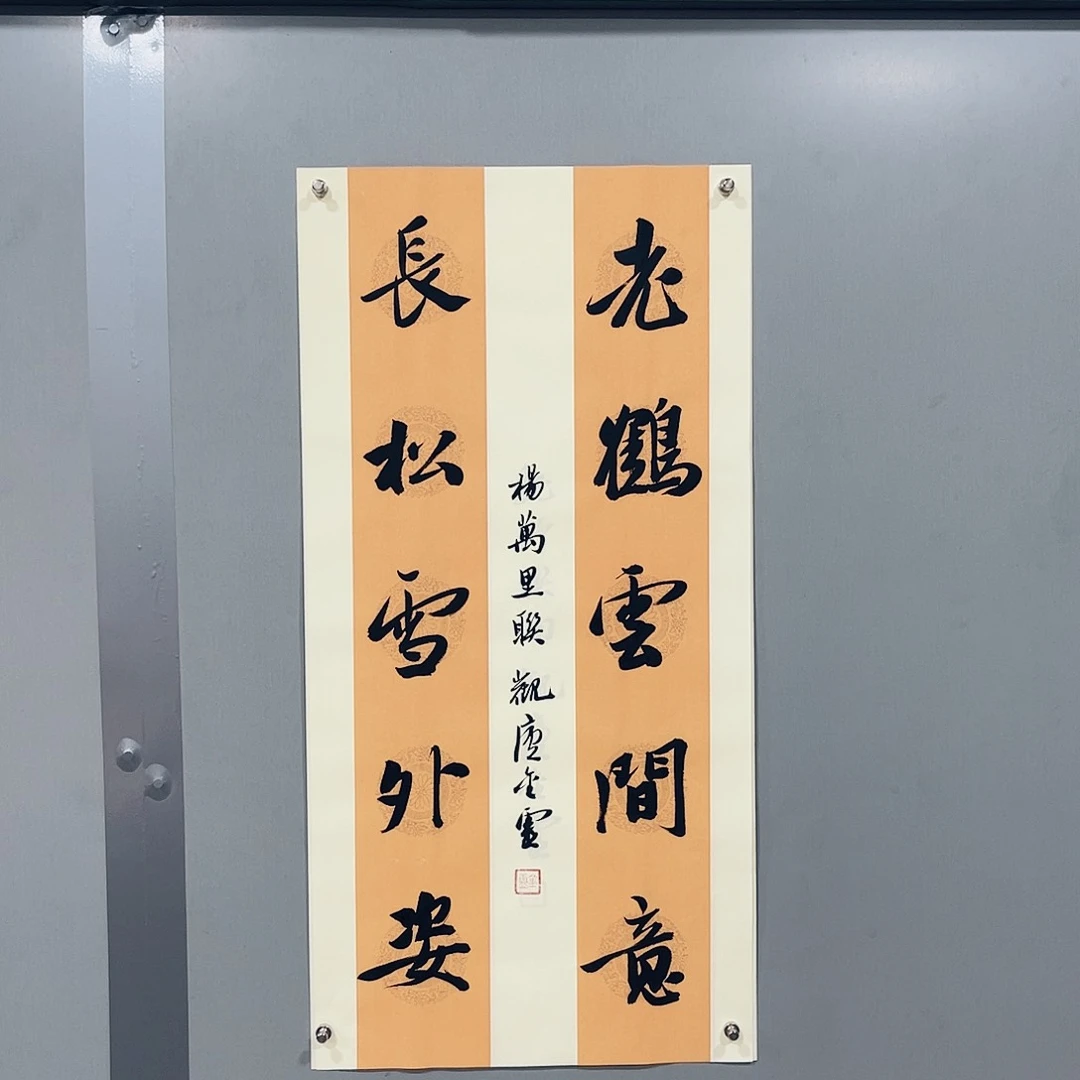 老鶴雲間意
長松雪外姿
楊萬里聯 觀